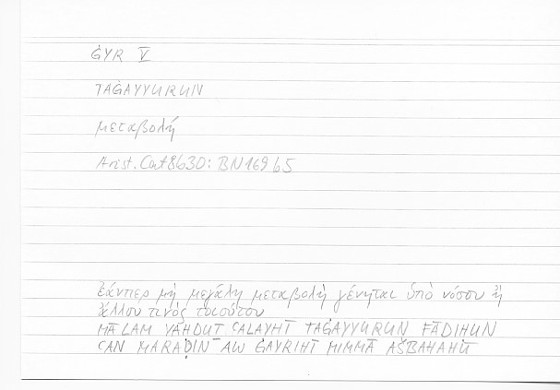 ĠYR V
TAĠAYYURUN
μεταβολή
Arist. Cat 8b30: BN169b5
ἐάνπερ μὴ μεγάλη μεταβολὴ γένηται ὑπὸ νόσου ἢ
ἄλλου τινὸς τοιούτου
MĀ LAM YAḤDUṮ CALAYHĪ TAĠAYYURUN FĀDIḤUN
CAN MARAḌIN AW ĠAYRIHĪ MIMMĀ AŠBAHAHŪ